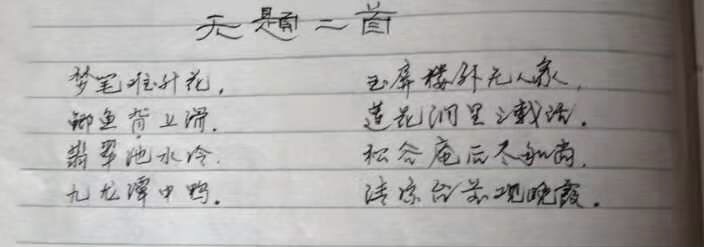 无题二首
梦笔难开花,
鲫鱼背上滑.
翡翠池水冷.
九龙潭中鸭.
玉屏楼外无人家,
莲花洞里
松谷庵后不知
清凉台前观晚霞.